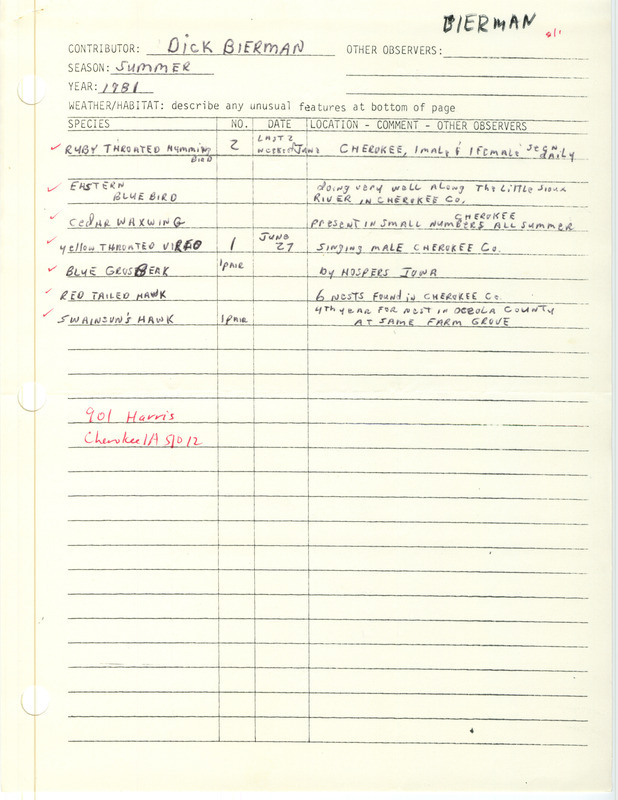 BIERMAN
CONTRIBUTOR: DICK BIERMAN OTHER OBSERVERS:
SEASON: SUMMER
YEAR: 1981
WEATHER/HABITAT: describe any unusual features at bottom of page
SPECIES NO. DATE LOCATION - COMMENT - OTHER OBSERVERS
RUBY THROATED HUMMING BIRD 2 LAST 2 WEEKS OF JUNE CHEROKEE, 1 MALE & 1 FEMALE SEEN DAILY
EASTERN BLUE BIRD doing very well Along The Little Sioux
RIVER IN CHEROKEE CO.
CEDAR WAXWING PRESENT IN SMALL NUMBERS CHEROKEE ALL SUMMER
YELLOW THROATED VIREO 1 JUNE 27 SINGING MALE CHEROKEE CO.
BLUE GROSBEAK 1 PAIR by HOSPERS IOWA
RED TAILED HAWK 6 NESTS FOUND IN CHEROKEE CO.
SWAINSON'S HAWK 1 PAIR 4TH YEAR FOR NEST IN OCEOLA COUNTY
AT SAME FARM GROVE
901 Harris
Cherokee IA 51012